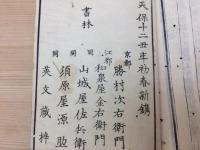 天保十二丑年初春新鐫
書林
京都
勝村次右衛門
江都
和泉屋金右衛門
同
山城屋佐兵衛
同
須原屋源助
同
英文蔵梓